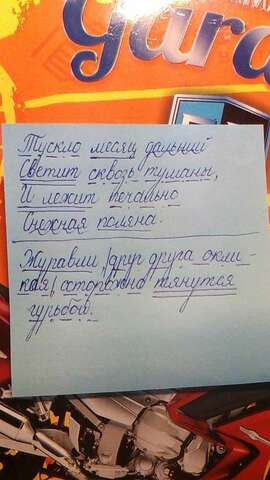 Gara
Тускло месяц дальний
Светит сквозь туманы,
И лежит печально
Снежная поляна.
Журавли, друг друга окли-
кая, осторожно тянутся
гурьбой.